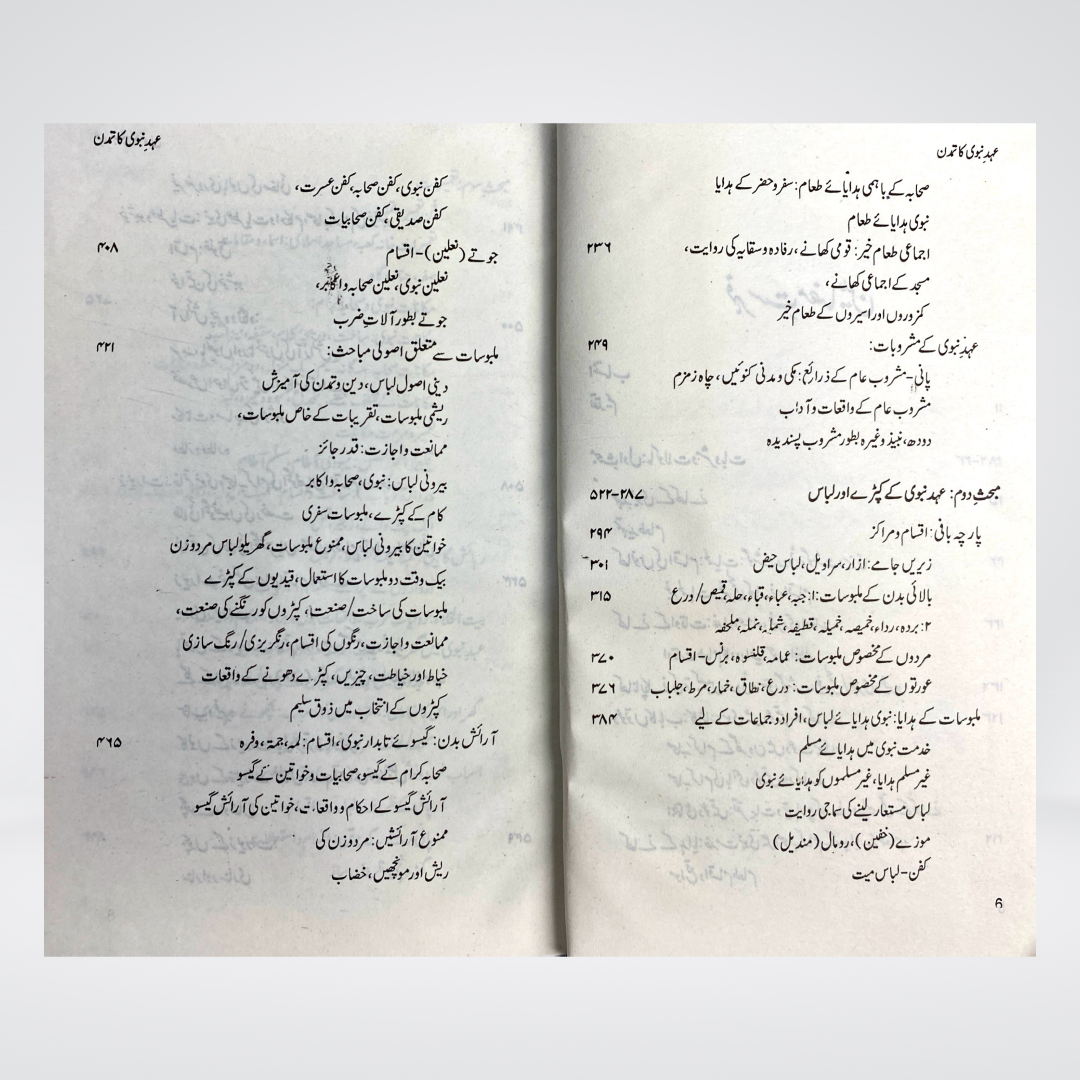 عہدِ نبوی کا تمدن
صحابہ کے باہمی ہدایائے طعام: سفر و حضر کے ہدایا
نبوی ہدایائے طعام
اجماعی طعام خیر: قومی کھانے، رفادہ و سقایہ کی روایت، ۲۳۶
مسجد کے اجماعی کھانے،
کمزوروں اور اسیروں کے طعام خیر
عہدِ نبوی کے مشروبات: ۲۴۹
پانی-مشروب عام کے ذرائع: مکی و مدنی کنوئیں، چاہ زمزم
مشروب عام کے واقعات و آداب
دودھ، نبیذ وغیرہ بطور مشروب پسندیدہ
مبحثِ دوم: عہد نبوی کے کپڑے اور لباس ۲۸۷-۵۲۲
پارچہ بافی: اقسام و مراکز ۲۹۴
زیریں جامے: ازار، سراویل، لباس حیض ۳۰۱
بالائی بدن کے ملبوسات: ۱: جبہ، عباء، قباء، حلہ، قمیص/ درع ۳۱۵
۲: بردہ، رداء، خمیصہ، خمیلہ، قطیفہ، شملہ، نملہ، ملحفہ
مردوں کے مخصوص ملبوسات: عمامہ، قلنسوہ، برنس-اقسام ۳۷۰
عورتوں کے مخصوص ملبوسات: درع، نطاق، خمار، مرط، جلباب ۳۷۶
ملبوسات کے ہدایا: نبوی ہدایائے لباس، افراد و جماعات کے لیے ۳۸۴
خدمت نبوی میں ہدایائے مسلم
غیر مسلم ہدایا، غیر مسلموں کو ہدایائے نبوی
لباس مستعار لینے کی سماجی روایت
موزے (خفین)، رومال (مندیل)
کفن-لباس میت
6
عہدِ نبوی کا تمدن
کفن نبوی، کفن صحابہ، کفن عسرت،
کفن صدیقی، کفن صحابیات
جوتے (نعلین)-اقسام ۴۰۸
نعلین نبوی، نعلین صحابہ و اکابر،
جوتے بطور آلاتِ ضرب
ملبوسات سے متعلق اصولی مباحث: ۴۲۱
دینی اصول لباس، دین و تمدن کی آمیزش
ریشمی ملبوسات، تقریبات کے خاص ملبوسات،
ممانعت و اجازت: قدر جائز
بیرونی لباس: نبوی، صحابہ و اکابر
کام کے کپڑے، ملبوسات سفری
خواتین کا بیرونی لباس، ممنوع ملبوسات، گھریلو لباس مرد و زن
بیک وقت دو ملبوسات کا استعمال، قیدیوں کے کپڑے
ملبوسات کی ساخت/ صنعت، کپڑوں کو رنگنے کی صنعت،
ممانعت و اجازت، رنگوں کی اقسام، رنگریزی/ رنگ سازی
خیاط اور خیاطت، چیزیں، کپڑے دھونے کے واقعات
کپڑوں کے انتخاب میں ذوق سلیم
آرائش بدن: گیسوئے تابدار نبوی، اقسام: لمہ، جمۃ، وفرہ ۴۶۵
صحابہ کرام کے گیسو، صحابیات و خواتین کے گیسو
آرائش گیسو کے احکام و واقعات، خواتین کی آرائش گیسو
ممنوع آرائشیں: مرد و زن کی
ریش اور مونچھیں، خضاب